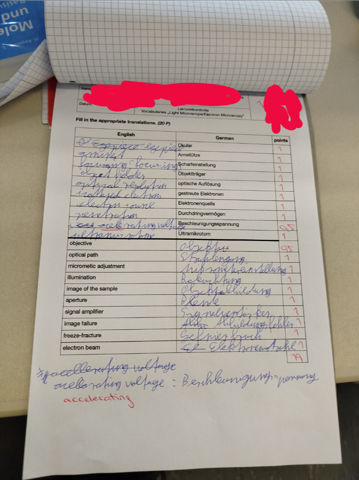 Mole
und
Vocabularies „Light Microscope/Electron Microscopy"
Fill in the appropriate translations. (20 P)
English German points
eyepiece Okular 1
Armstütze 1
focusing Scharfeinstellung 1
object holder Objektträger 1
optical resolution optische Auflösung 1
scattered electrons gestreute Elektronen 1
electron source Elektronenquelle 1
penetration Durchdringvermögen 1
accelerating voltage Beschleunigungsspannung 0,5
ultramicrotome Ultramikrotom 1
objective Objektiv 0,5
optical path Strahlengang 1
micrometic adjustment 1
illumination Beleuchtung 1
image of the sample Objektabbildung 1
aperture Blende 1
signal amplifier Signalverstärker 1
image failure Abbildungsfehler 1
freeze-fracture Gefrierbruch 1
electron beam Elektronenstrahl 1
19
accelerating voltage
accelerating voltage = Beschleunigungsspannung
accelerating